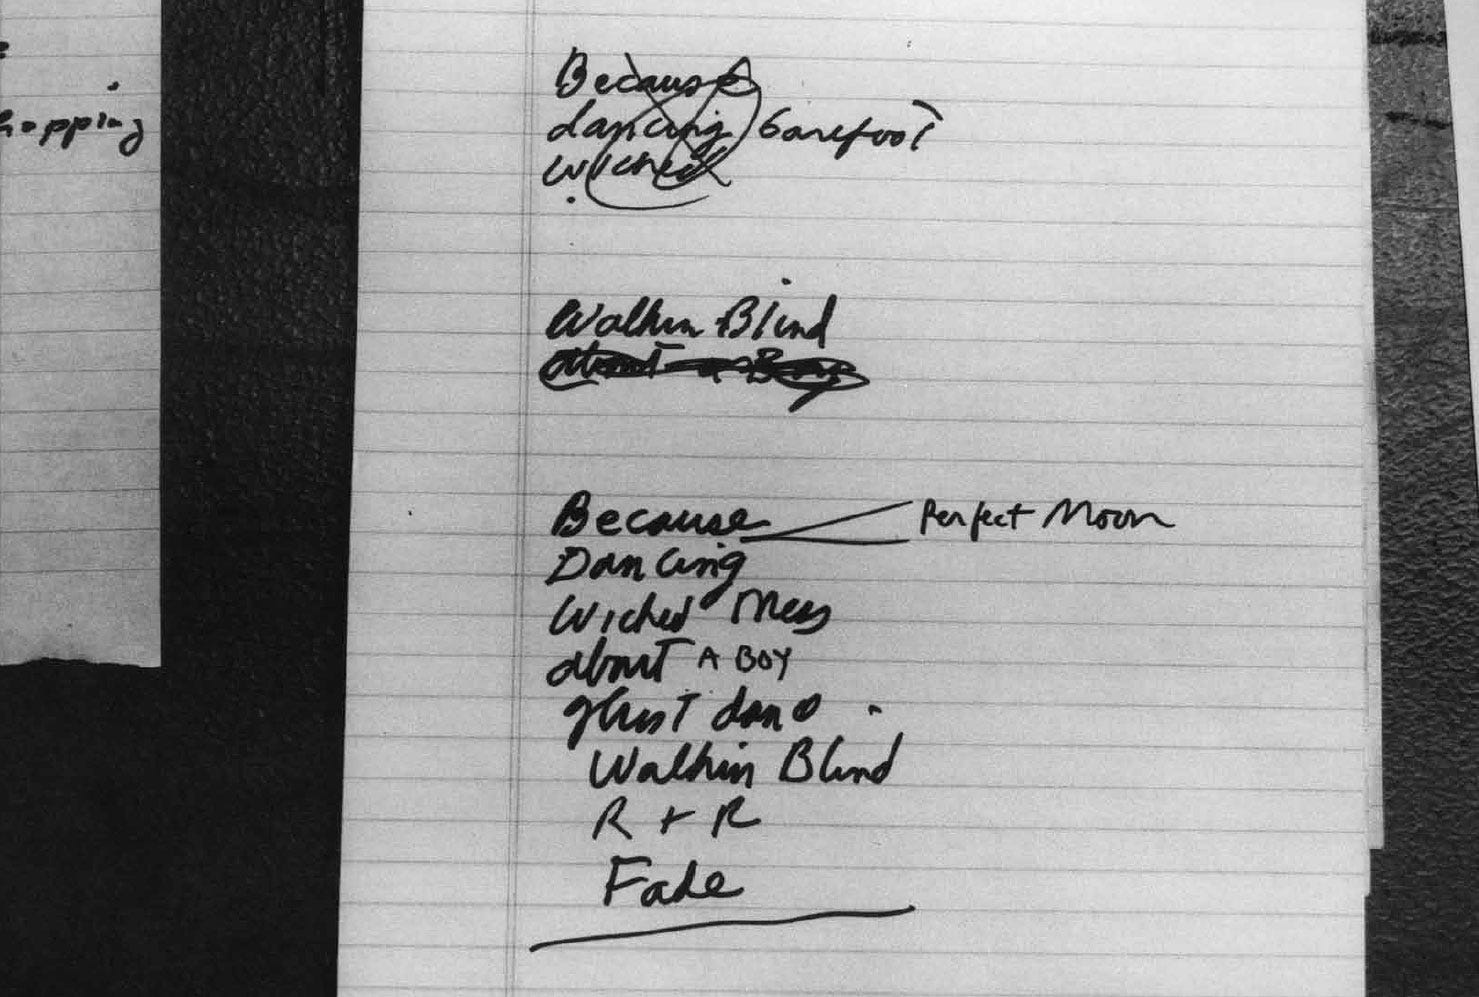 hopping
Because
dancing barefoot
wicked
Walkin Blind
about a Boy
Because Perfect Moon
Dancing
Wicked Mess
about A BOY
ghost dance
Walkin Blind
R + R
Fade